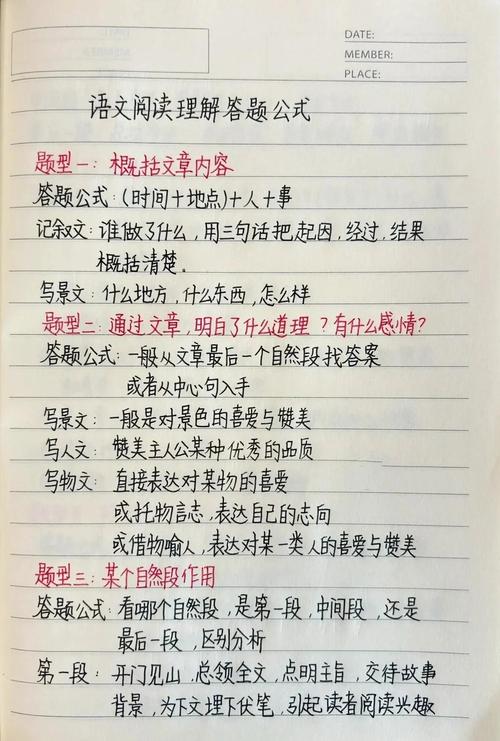 DATE:
MEMBER:
PLACE:
语文阅读理解答题公式
题型一：概括文章内容
答题公式：(时间+地点)+人+事
记叙文：谁做了什么，用三句话把起因，经过，结果
概括清楚。
写景文：什么地方，什么东西，怎么样
题型二：通过文章，明白了什么道理？有什么感情？
答题公式：一般从文章最后一个自然段找答案
或者从中心句入手
写景文：一般是对景色的喜爱与赞美
写人文：赞美主人公某种优秀的品质
写物文：直接表达对某物的喜爱
或托物言志，表达自己的志向
或借物喻人，表达对某一类人的喜爱与赞美
题型三：某个自然段作用
答题公式：看哪个自然段，是第一段，中间段，还是
最后一段，区别分析
第一段：开门见山，总领全文，点明主旨，交待故事
背景，为下文埋下伏笔，引起读者阅读兴趣